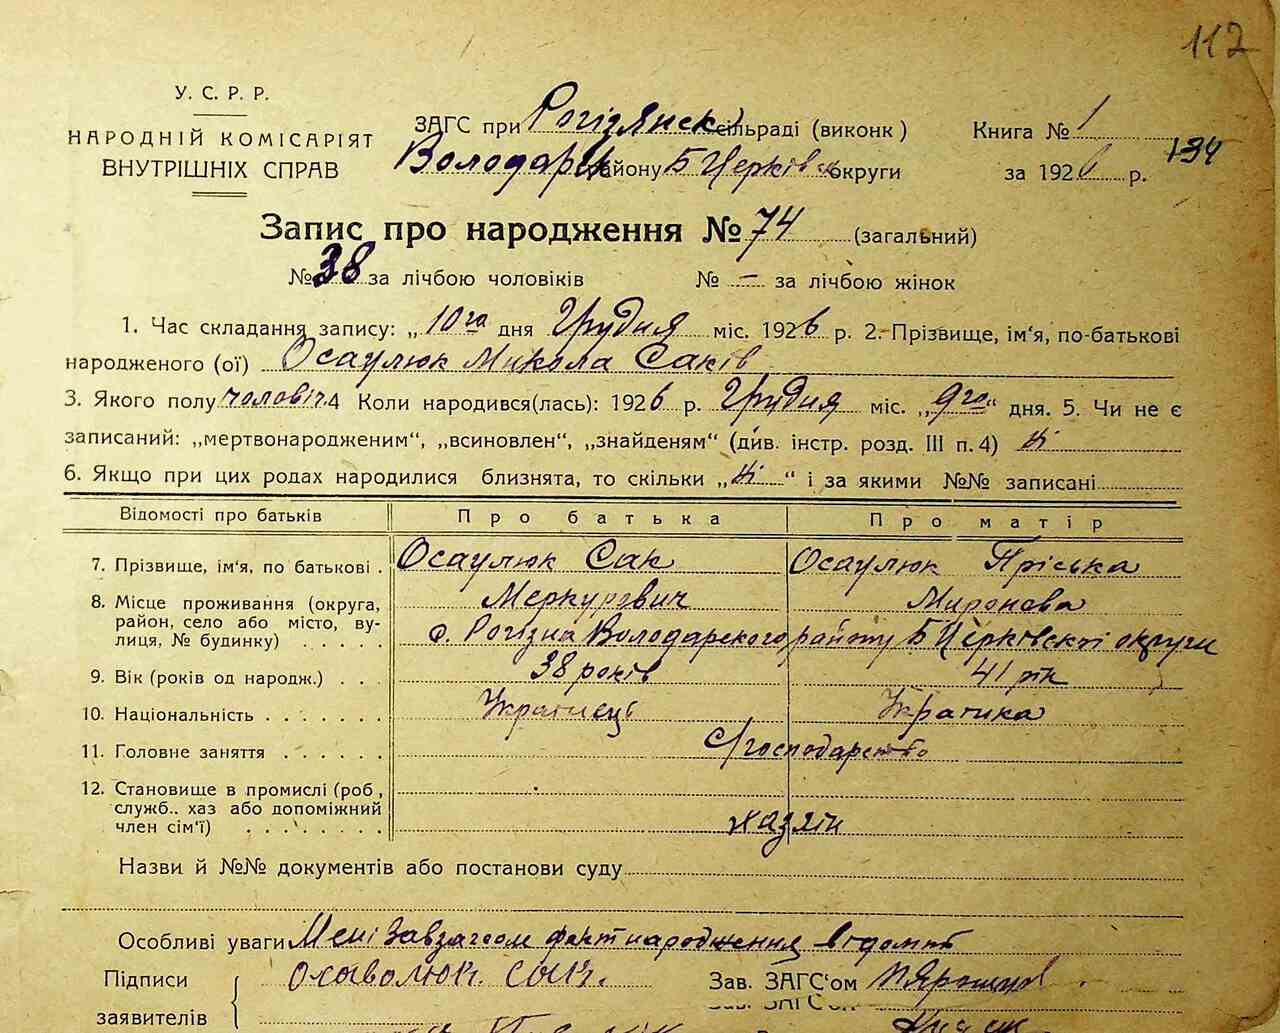 112
У. С. Р. Р.
НАРОДНІЙ КОМІСАРІЯТ
ВНУТРІШНІХ СПРАВ
ЗАГС при Рогізянск сільраді (виконк)
Володарск району Б Церківск округи
Книга № 1
134
за 1926 р.
Запис про народження № 74 (загальний)
№ 38 за лічбою чоловіків № — за лічбою жінок
1. Час складання запису: „10го дня Грудня міс. 1926 р. 2. Прізвище, ім'я, по-батькові
народженого (ої) Осаулюк Микола Саків
3. Якого полу чоловіч. 4 Коли народився(лась): 1926 р. Грудня міс. „9го" дня. 5. Чи не є
записаний: „мертвонародженим", „всиновлен", „знайденям" (див. інстр. розд. III п. 4) ні
6. Якщо при цих родах народилися близнята, то скільки „ні" і за якими №№ записані
Відомості про батьків Про батька Про матір
7. Прізвище, ім'я, по батькові . Осаулюк Сак Осаулюк Пріська
Меркурович Миронова
8. Місце проживання (округа,
район, село або місто, ву-
лиця, № будинку) . . . . . с. Рогізна Володарского району Б Церківскої округи
9. Вік (років од народж.) . . . 38 років 41 рік
10. Національність . . . . . . . Українець Українка
11. Головне заняття . . . . . . с/господарство
12. Становище в промислі (роб,
служб.. хаз або допоміжний
член сім'ї) . . . . . . . . хазяїн
Назви й №№ документів або постанови суду
Особливі уваги Мені Завзагсом факт народження відомий
Підписи Осаволюк. Сак. Зав. ЗАГС'ом
заявителів